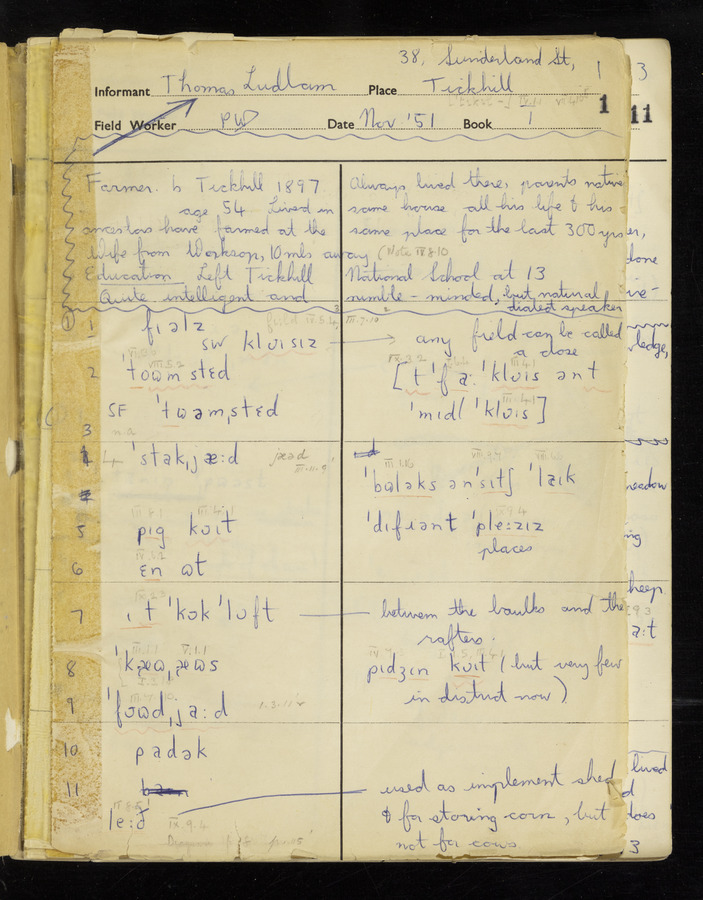 38, Sunderland St,
Informant Thomas Ludlam Place Tickhill
1 3
1 11
Field Worker PW Date Nov '51 Book 1
Farmer. b Tickhill 1897
age 54 Lived in
ancestors have farmed at the
Wife from Worksop, 10 mls away (Note
Education Left Tickhill
Quite intelligent and
Always lived there, parents native
same house all his life & his
same place for the last 300 yrs
National School at 13
nimble-minded, but natural
dialect speaker
1 fɪəlz
sw klʊɪsɪz
any field can be called
a close
2 'tɒəmsted
SF 'twəm,stɛd
[t 'fa: 'klʊɪs ənt
'midl 'klʊɪs]
3 n.a
4 'stak,jæ:d jæəd
'bʊləks ən'sɪtʃ 'laɪk
5 pɪg kɔɪt
'dɪfɪənt 'ple:zɪz
places
6 ɛn ɒt
7 ɪ t 'kɒk 'lɒft
between the baulks and the
rafters.
8 'kæʊ,æʊs
pɪdʒɪn kɔɪt (but very few
in district now)
9 'fɒʊd,ja:d
10 padək
11
le:ð
used as implement shed
& for storing corn, but
not for cows